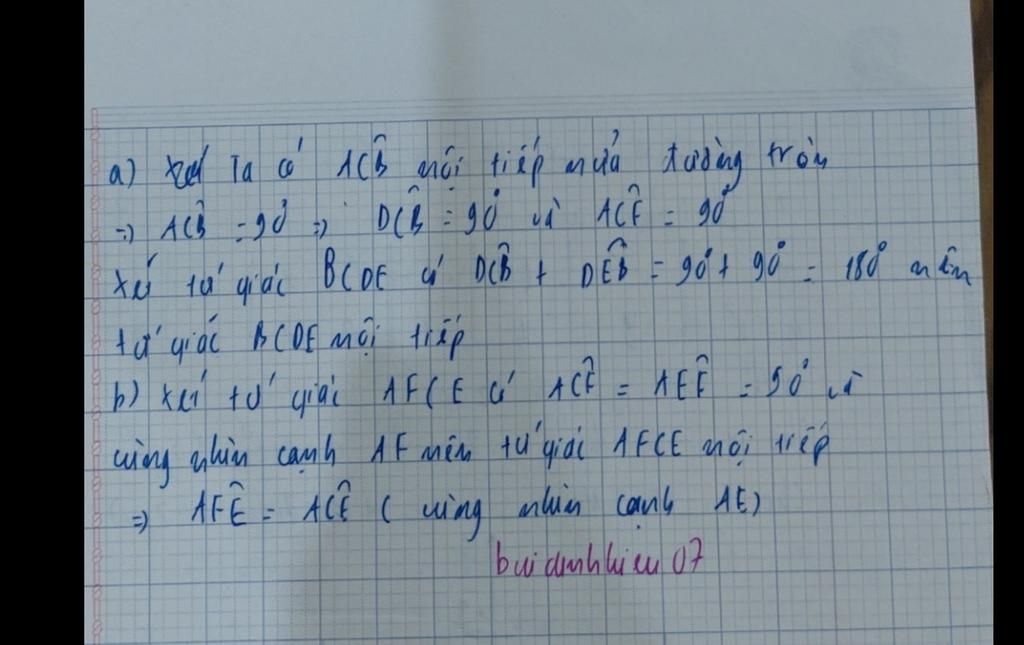 a) Ta có ACB̂ nội tiếp nửa đường tròn
=> ACB̂ = 90° => DCB̂ = 90° và ACF̂ = 90°
Xét tứ giác BCDE có DCB̂ + DEB̂ = 90° + 90° = 180° nên
tứ giác BCDE nội tiếp
b) Xét tứ giác AFCE có ACF̂ = AEF̂ = 90° và
cùng nhìn cạnh AF nên tứ giác AFCE nội tiếp
=> AFÊ = ACÊ ( cùng nhìn cạnh AE)
buidinhhieu07